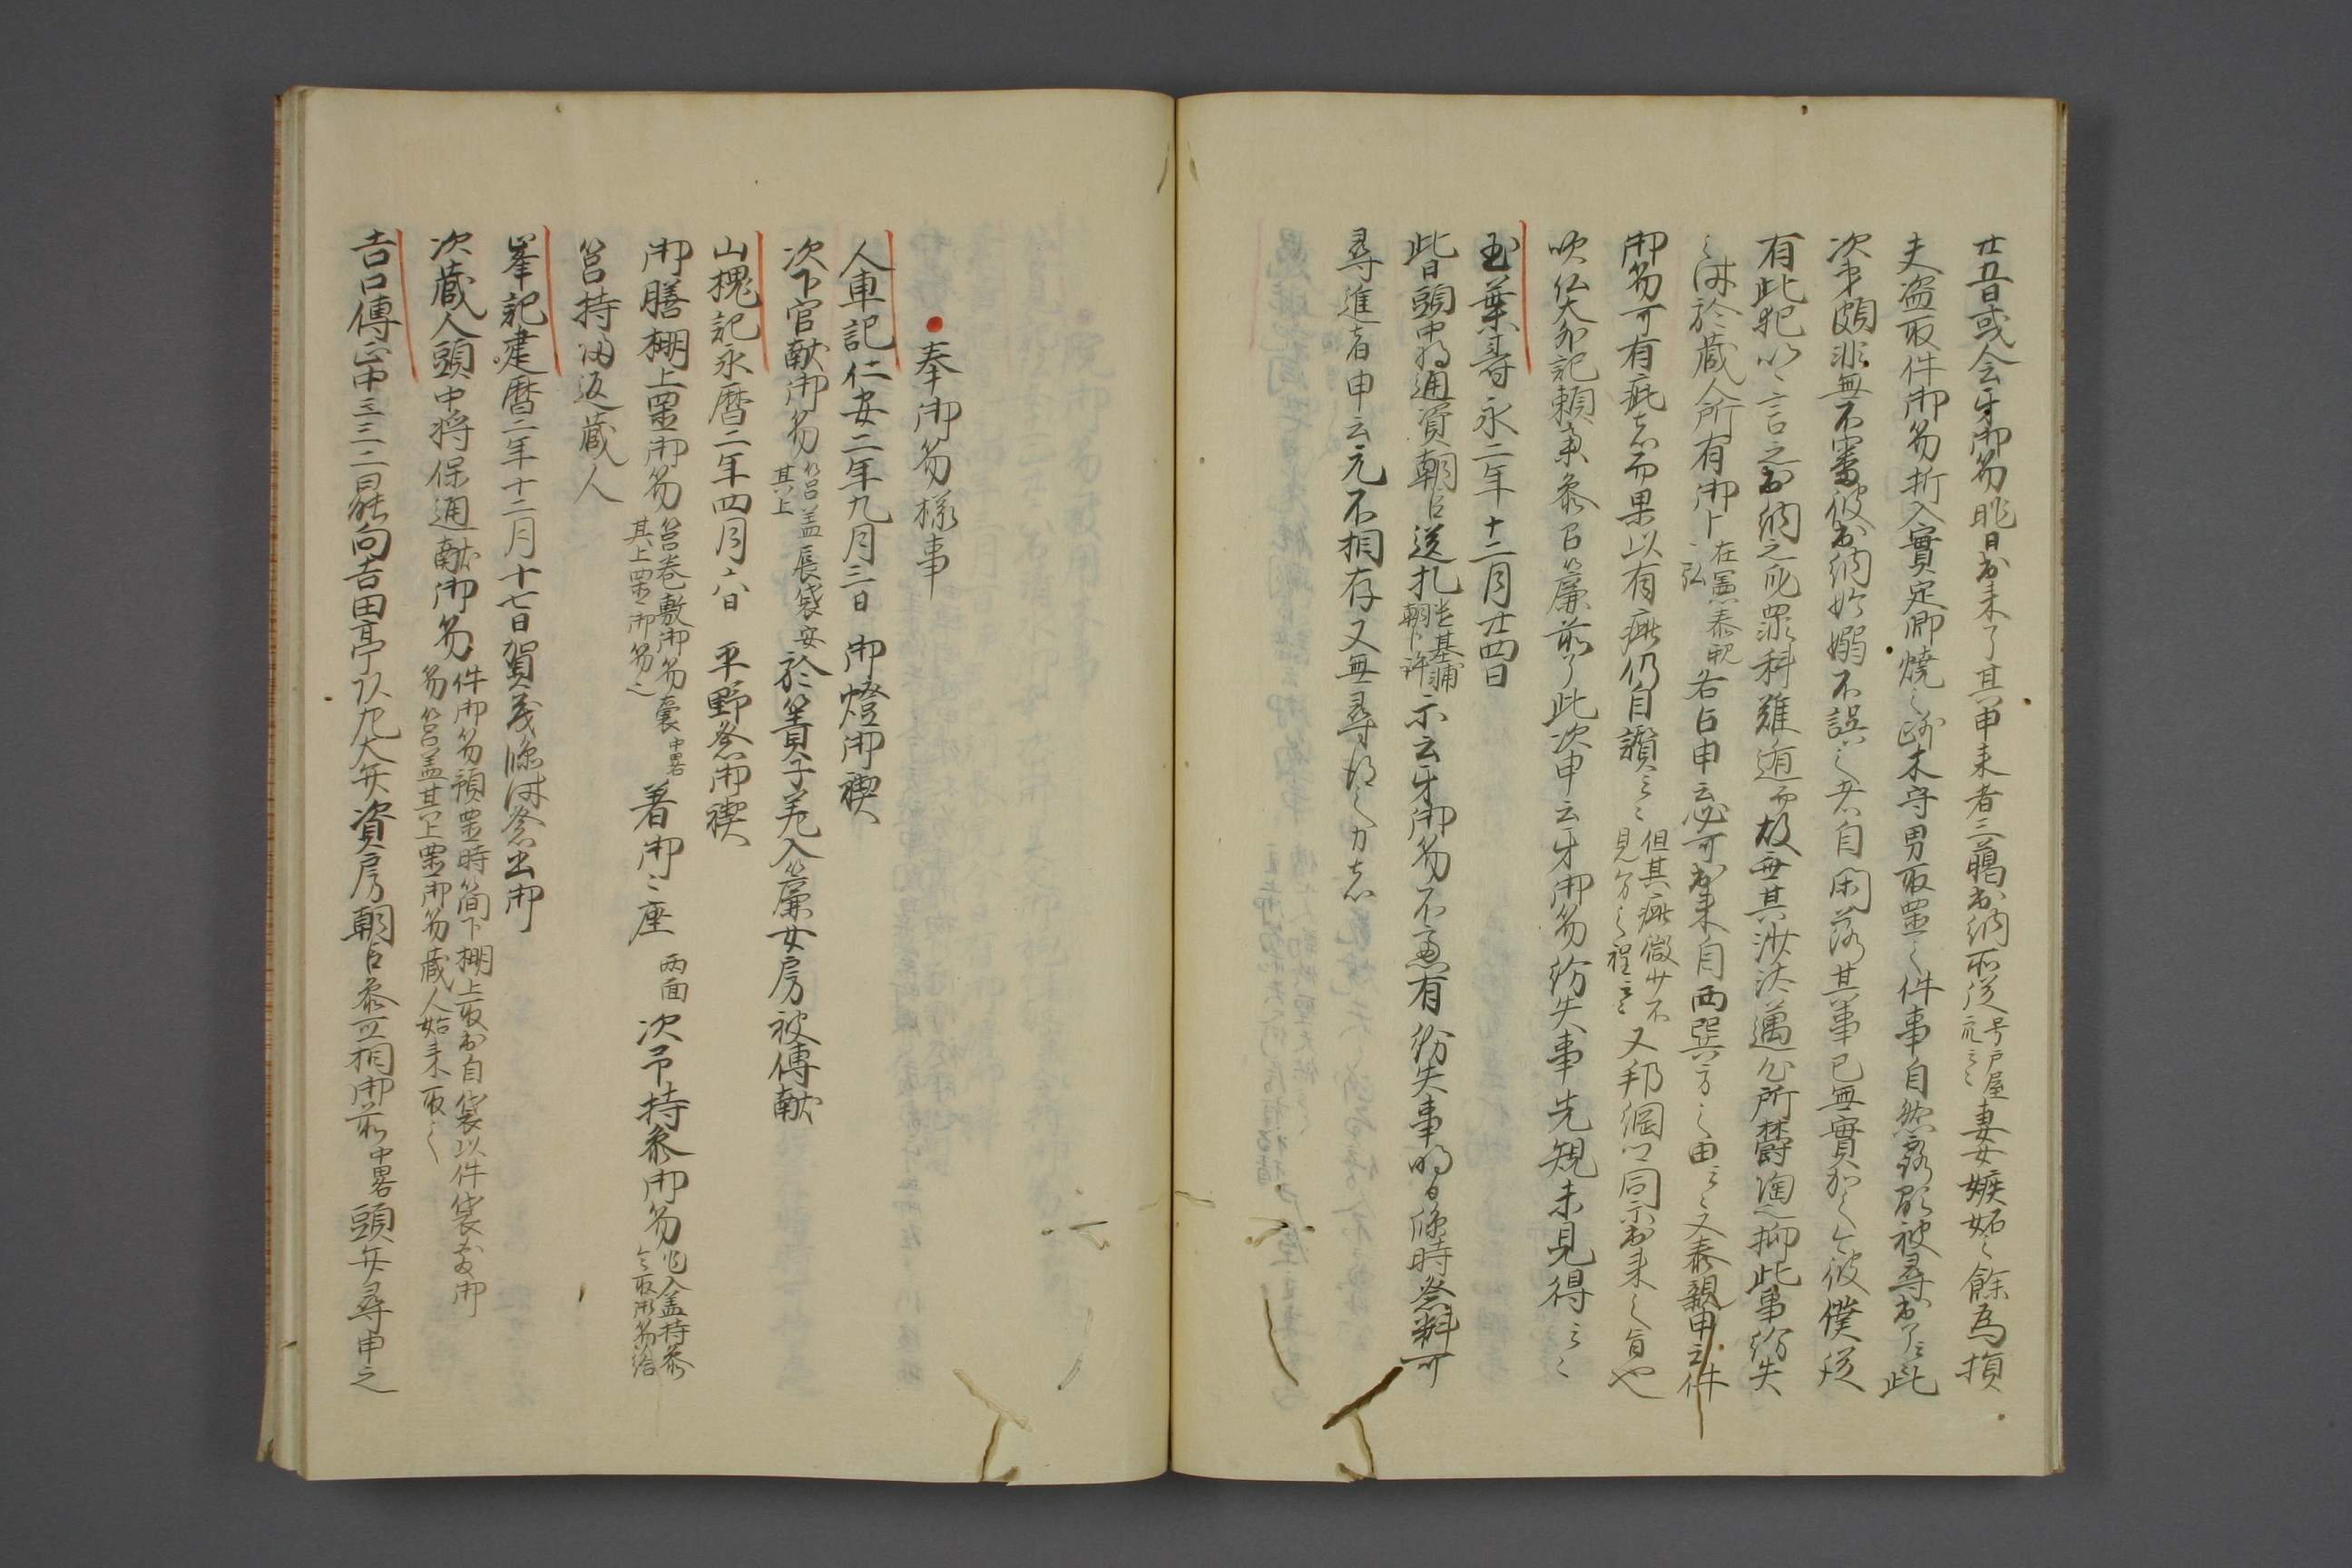 廿五日或云牙御笏昨日出来了其申来者三臈出納所従号戸屋云々妻女嫉妬之餘為損
夫盗取件御笏折入實定卿焼之間木守男取置之件事自然露顕被尋出了云々此
次第頗非無不審彼出納始嫋不誤之者自閑落其事已無實加之彼僕従
有此犯以之言之出納之所罪科難遁而故無其沙汰邁公所欝陶也抑此事紛失
之時於蔵人所有御卜在憲泰親各占申云必可出来自西巽方之由云々又泰親申云件
御笏可有疵者而果以有疵仍自讃云々但其疵微少不見分之程云々又邦綱以同示出来之旨也
吹仏大外記頼業参召簾前了此次申云牙御笏紛失事先規未見得云々
玉葉壽永二年十二月廿四日
此日頭中将通資朝臣送札基輔朝臣許示云牙御笏不慮有紛失事明日臨時祭料可
尋進者申云元不相存又無尋得之力者
奉御笏様事
人車記仁安二年九月三日 御燈御禊
次下官献御笏筥蓋展袋安其上於簀子差入簾女房被傳献
山槐記永暦二年四月六日 平野祭御禊
御膳棚上置御笏筥巻敷御笏嚢其上置御笏之中畧著御々座両面次予持参御笏乍入蓋持参令取御笏給
筥持帰返蔵人
峯記建暦二年十二月十七日賀茂臨時祭出御
次蔵人頭中将保通献御笏件御笏預置時簡下棚上取出自袋以件袋敷御笏筥蓋其上置御笏蔵人始末取之
吉口傳正中三三二日能向吉田亭以九大弁資房朝臣参立相御前中畧頭弁尋申之